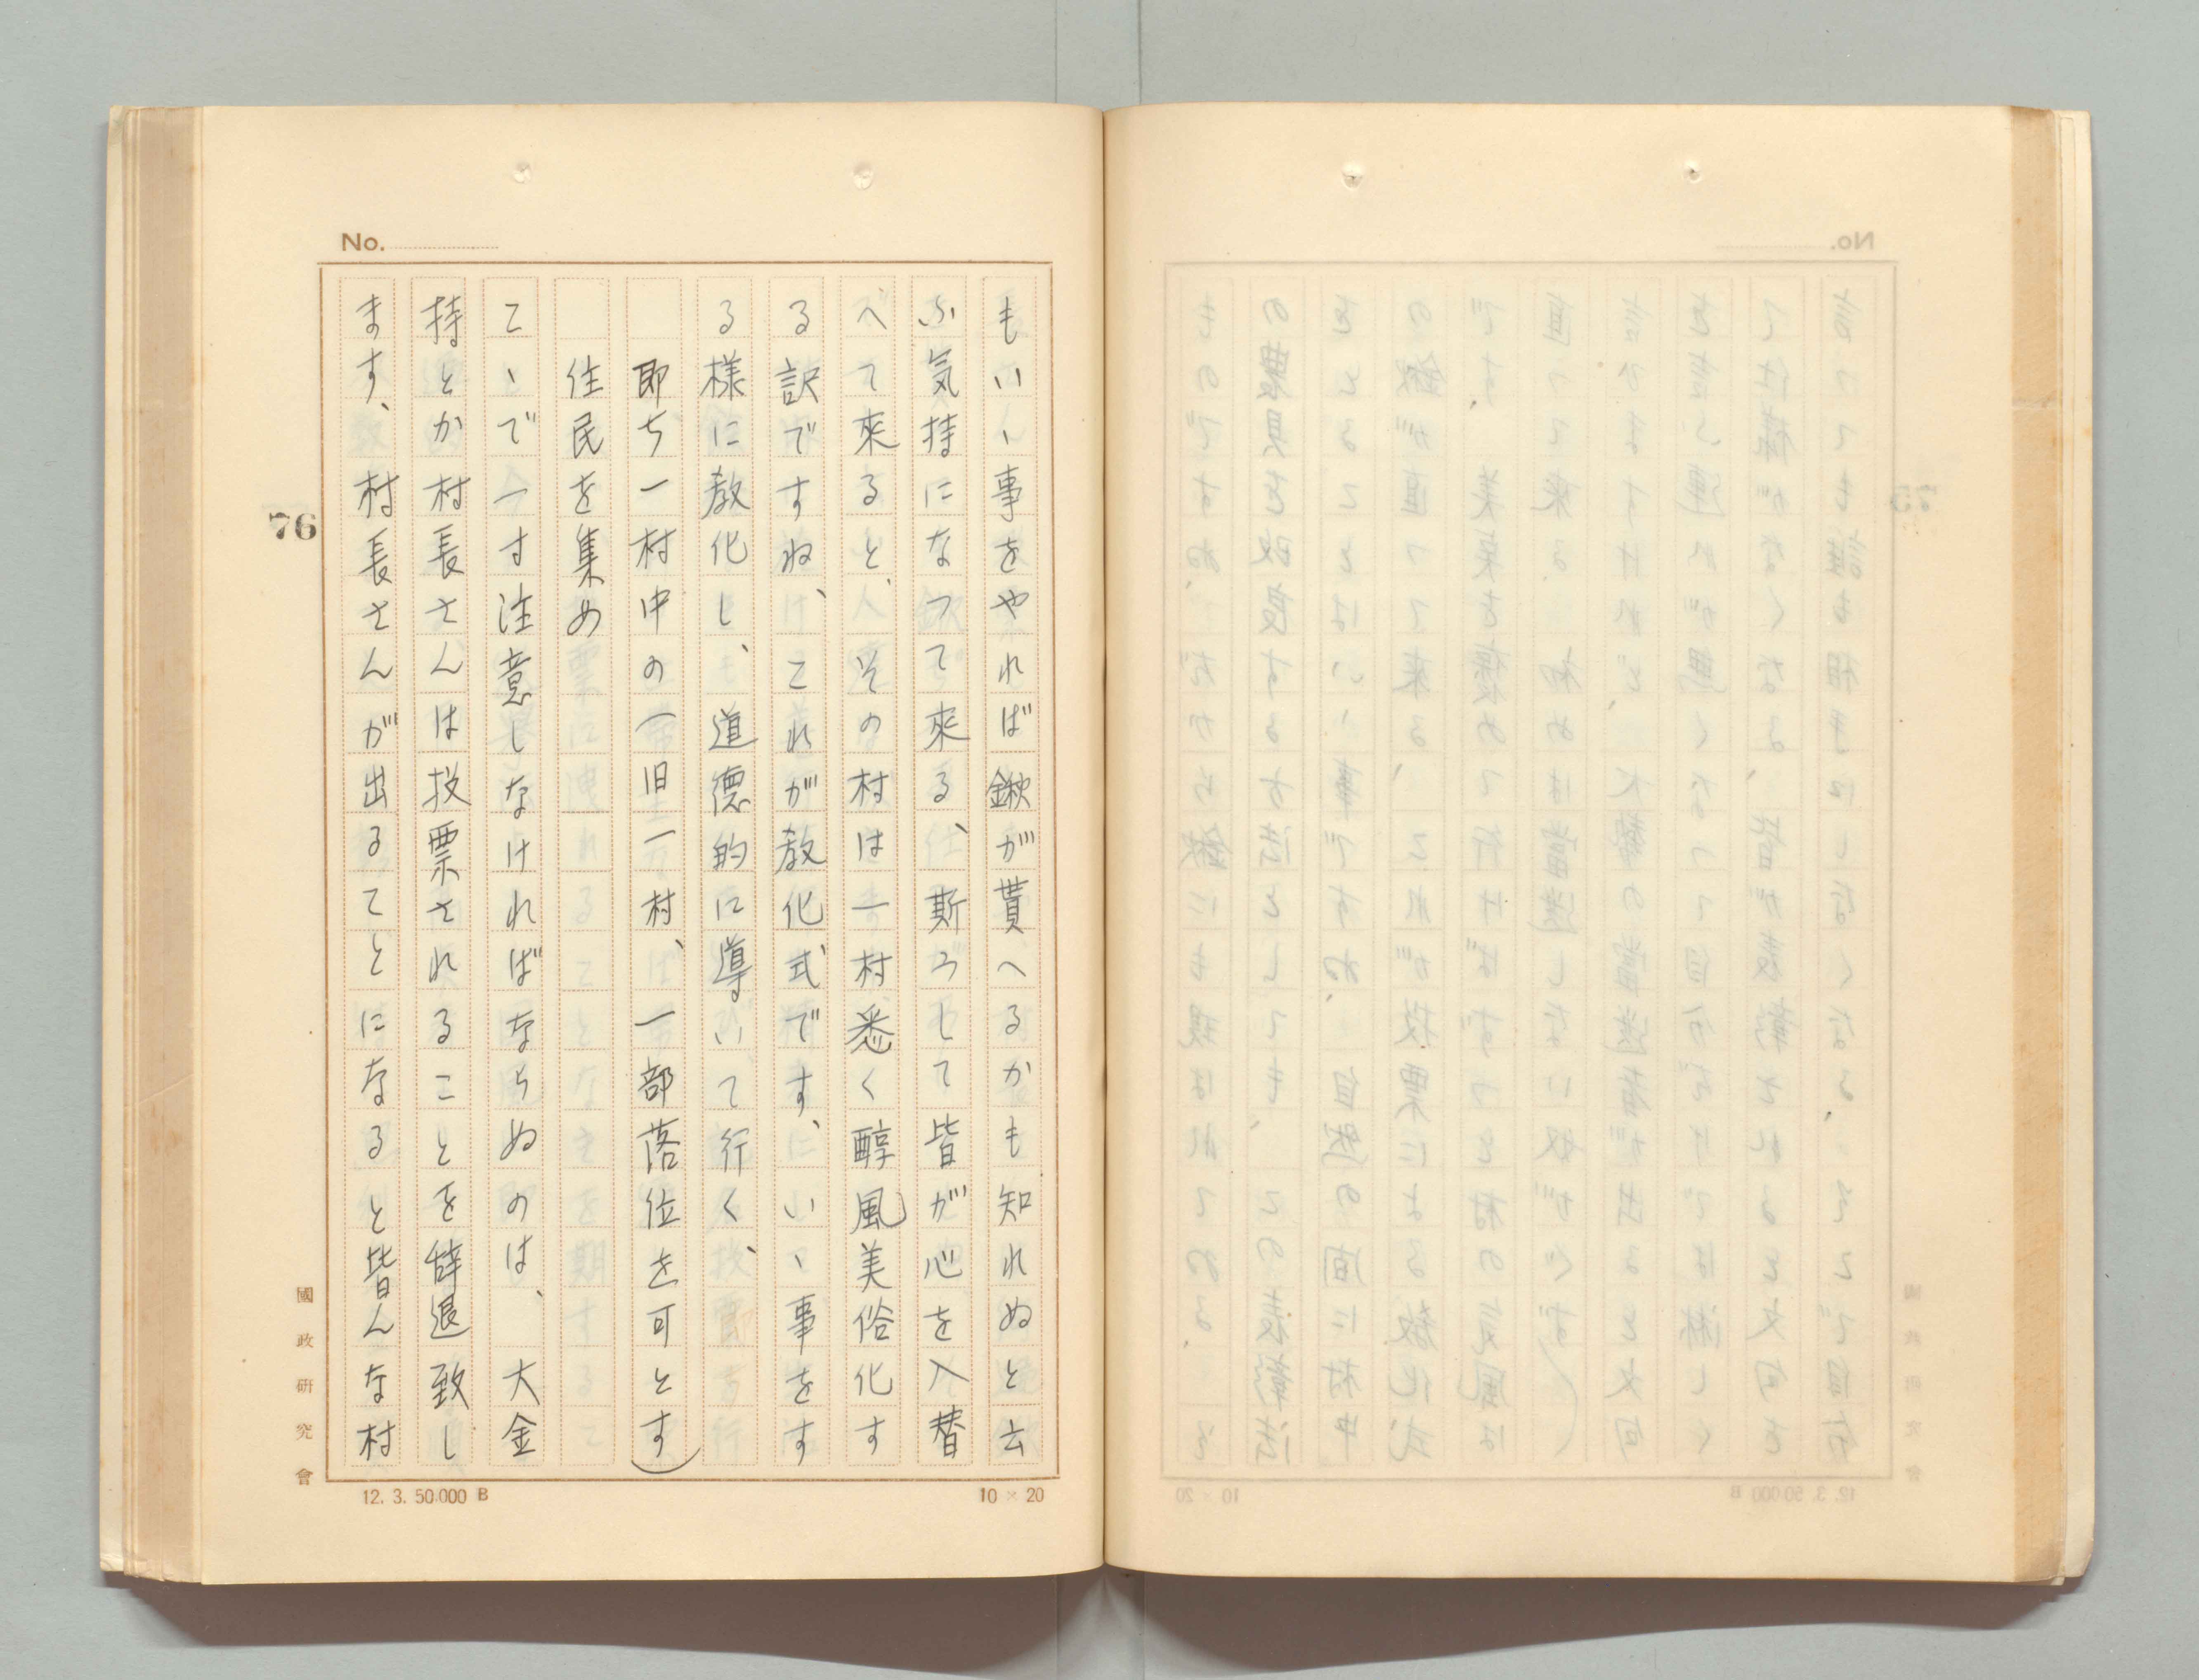 No.
もいゝ事をやれば鍬が貰へるかも知れぬと云
ふ気持になつて來る、斯うして皆が心を入替
べて來ると、その村は一村悉く醇風美俗化す
る訳ですね、これが教化式です、いゝ事をす
る様に教化し、道德的に導いて行く、
即ち一村中の(旧一村、一部落位を可とす)
住民を集め
こゝで一寸注意しなければならぬのは、大金
持とか村長さんは投票されることを辞退致し
ます、村長さんが出るてとになると皆んな村
76
國政研究會
12. 3. 50.000 B
10 × 20